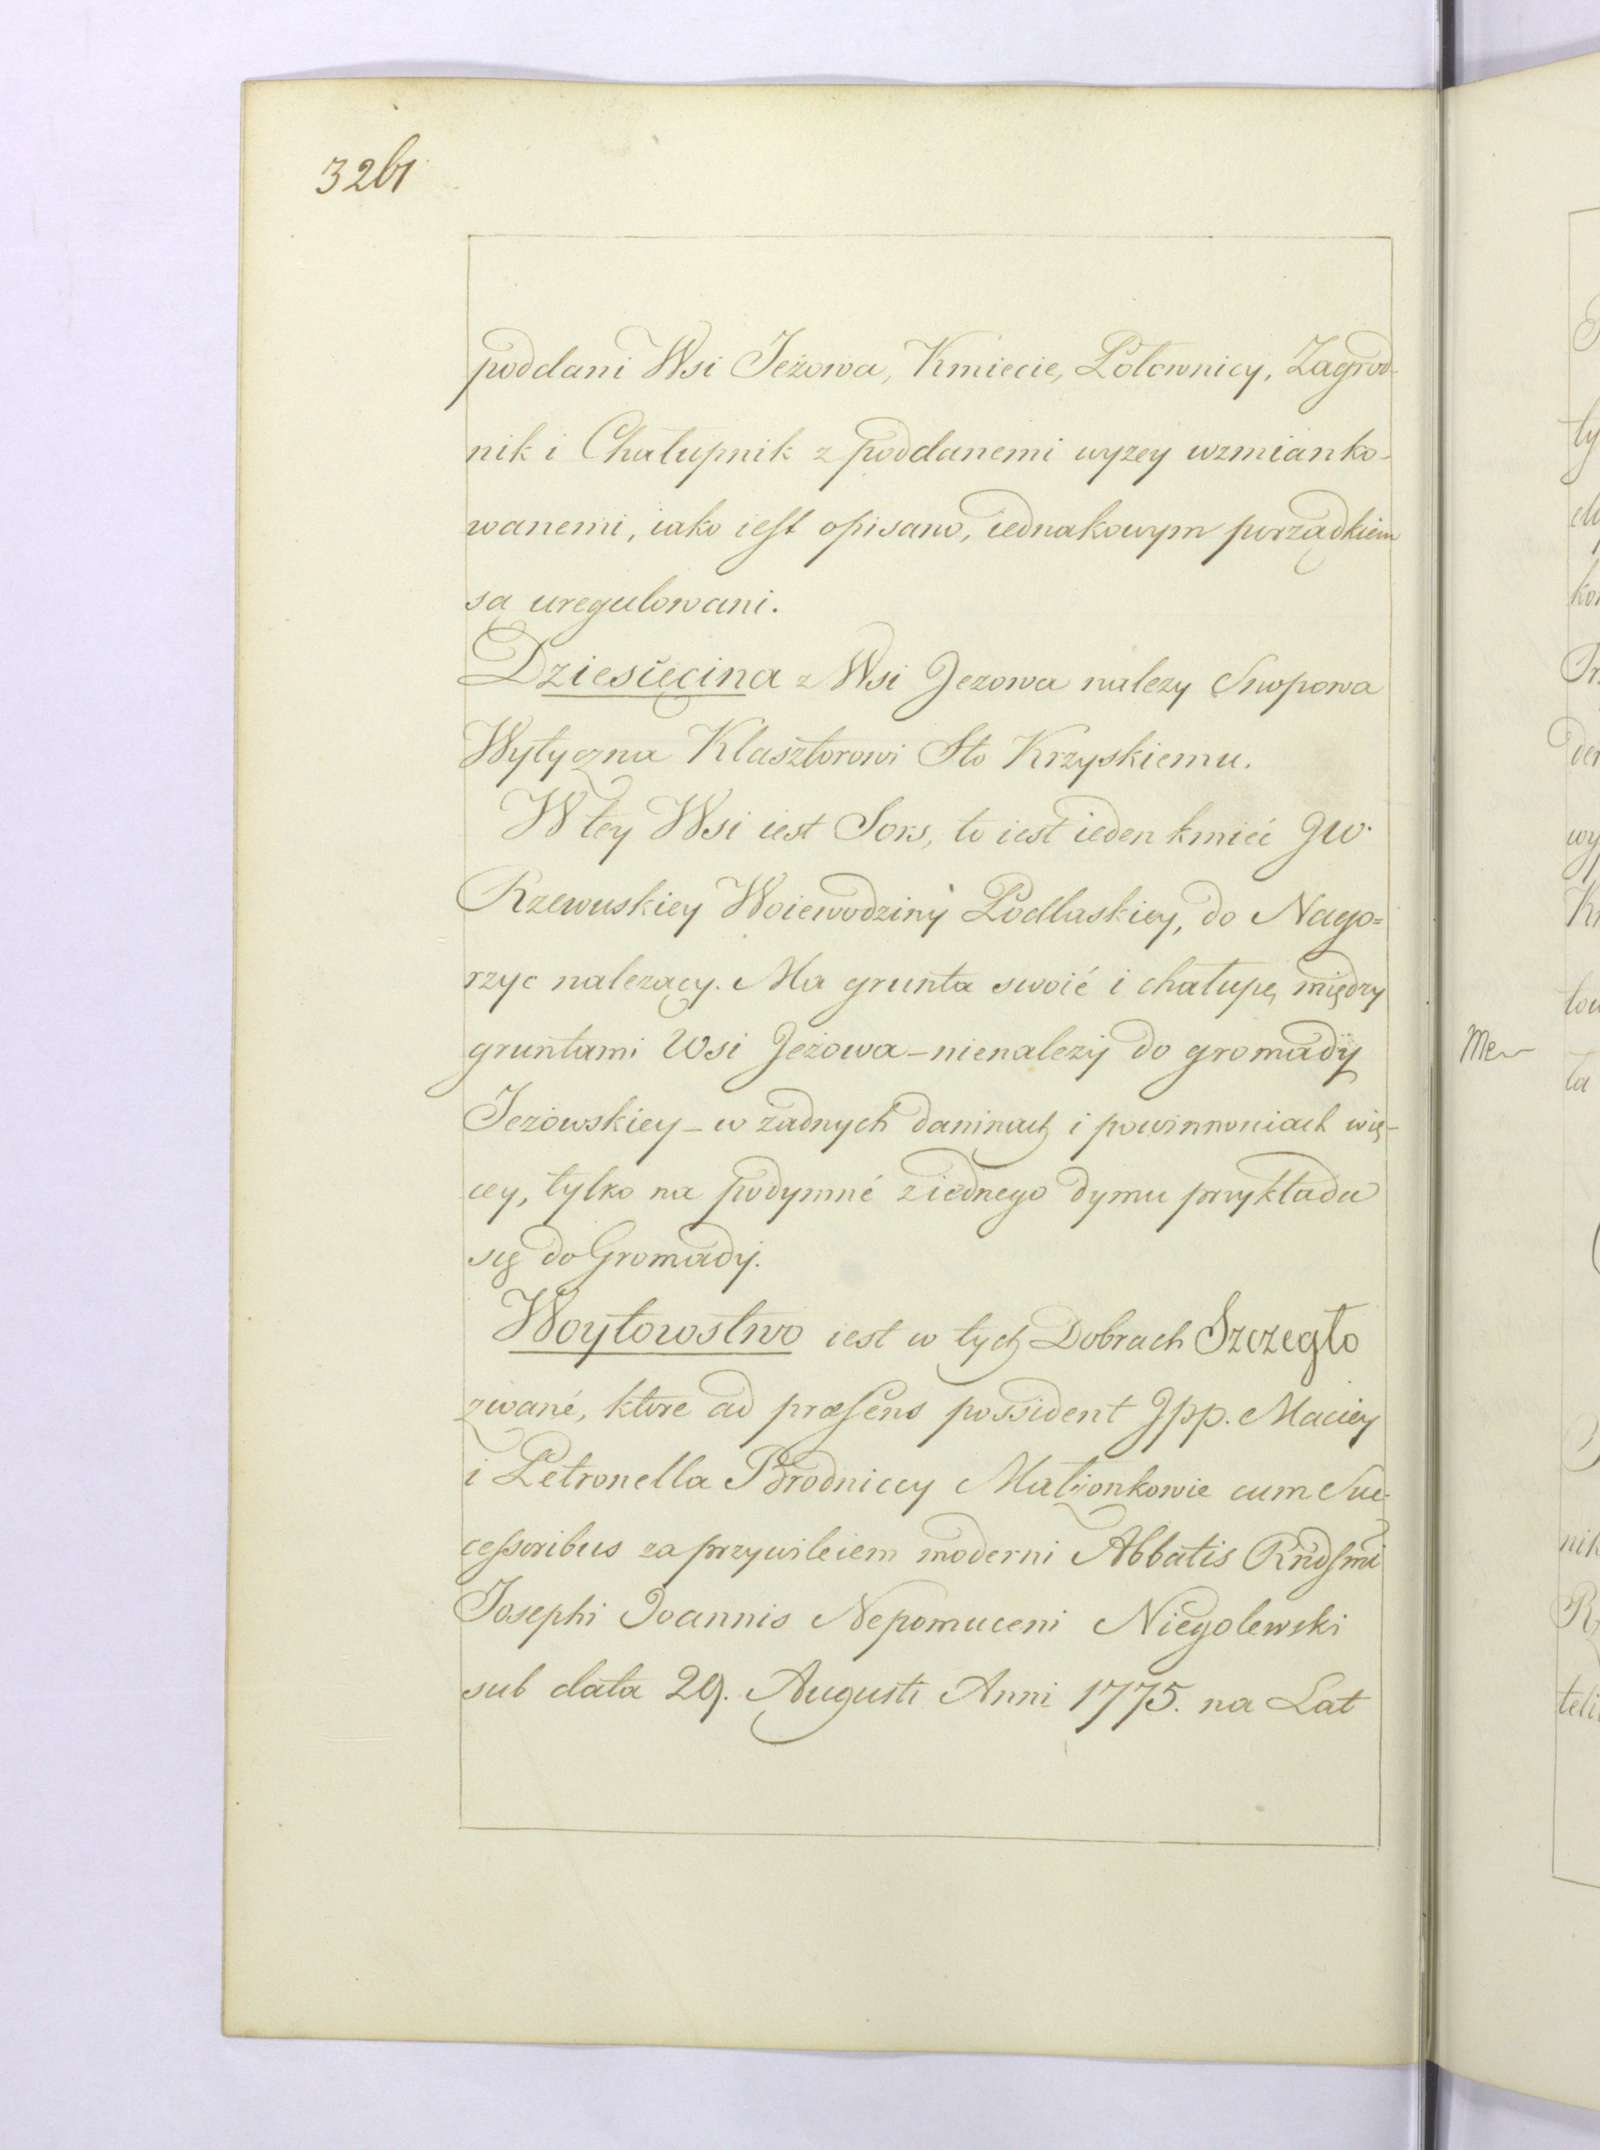 326
poddani Wsi Jeżowa, Kmiecie, Połownicy, Zagrod-
nik i Chałupnik z poddanemi wyzey wzmianko-
wanemi, iako iest opisano, iednakowym porządkiem
są uregulowani.
Dziesięcina z Wsi Jezowa nalezy Snopowa
Wytyczna Klasztorowi Sto Krzyskiemu.
W tey Wsi iest Sors, to iest ieden kmieć JW.
Rzewuskiey Woiewodziny Podlaskiey, do Nago=
rzyc nalezący. Ma grunta swoié i chałupę między
gruntami Wsi Jeżowa – nienalezy do gromady
Jeżowskiey – w zadnych daninach i powinnoniach wię-
cey, tylko na podymné z iednego dymu przykłada
się do Gromady.
Woytowstwo iest w tych Dobrach Szczegło
zwané, które ad præsens possident Jpp. Maciey
i Petronella Brodniccy Małżonkowie cum Suc-
cessoribus za przywileiem moderni Abbatis Rndsmi
Josephi Joannis Nepomuceni Niegolewski
sub data 29. Augusti Anni 1775. na Lat